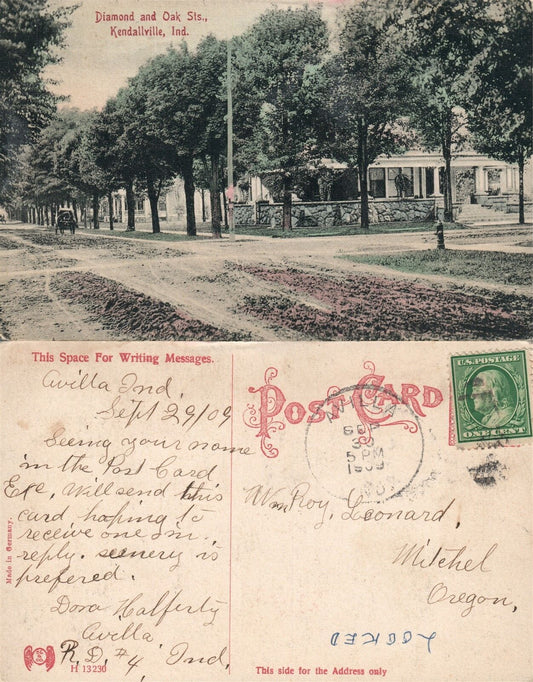 Diamond and Oak Sts.,
Kendallville, Ind.
This Space For Writing Messages.
Avilla Ind.
Sept 29/09
Seeing your name
in the Post Card
Exc. Will send this
card hoping to
receive one in
reply. scenery is
prefered.
Dora Halferty
Avilla
R.D. #4, Ind.
Made in Germany.
H 13230
POST CARD
AVILLA
SEP
5 PM
1909
U.S. POSTAGE
ONE CENT
Wm Roy Leonard,
Mitchel
Oregon,
LOOKED
This side for the Address only